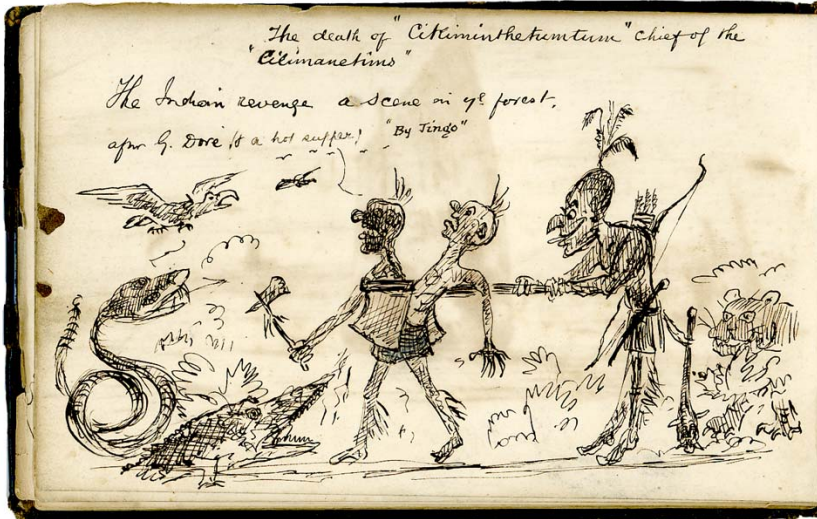 The death of "Cikiminthetumtum" chief of the
"Cilimanetims"
The Indian revenge a scene in ye forest,
after G. Doré & a hot supper!
"By Jingo"